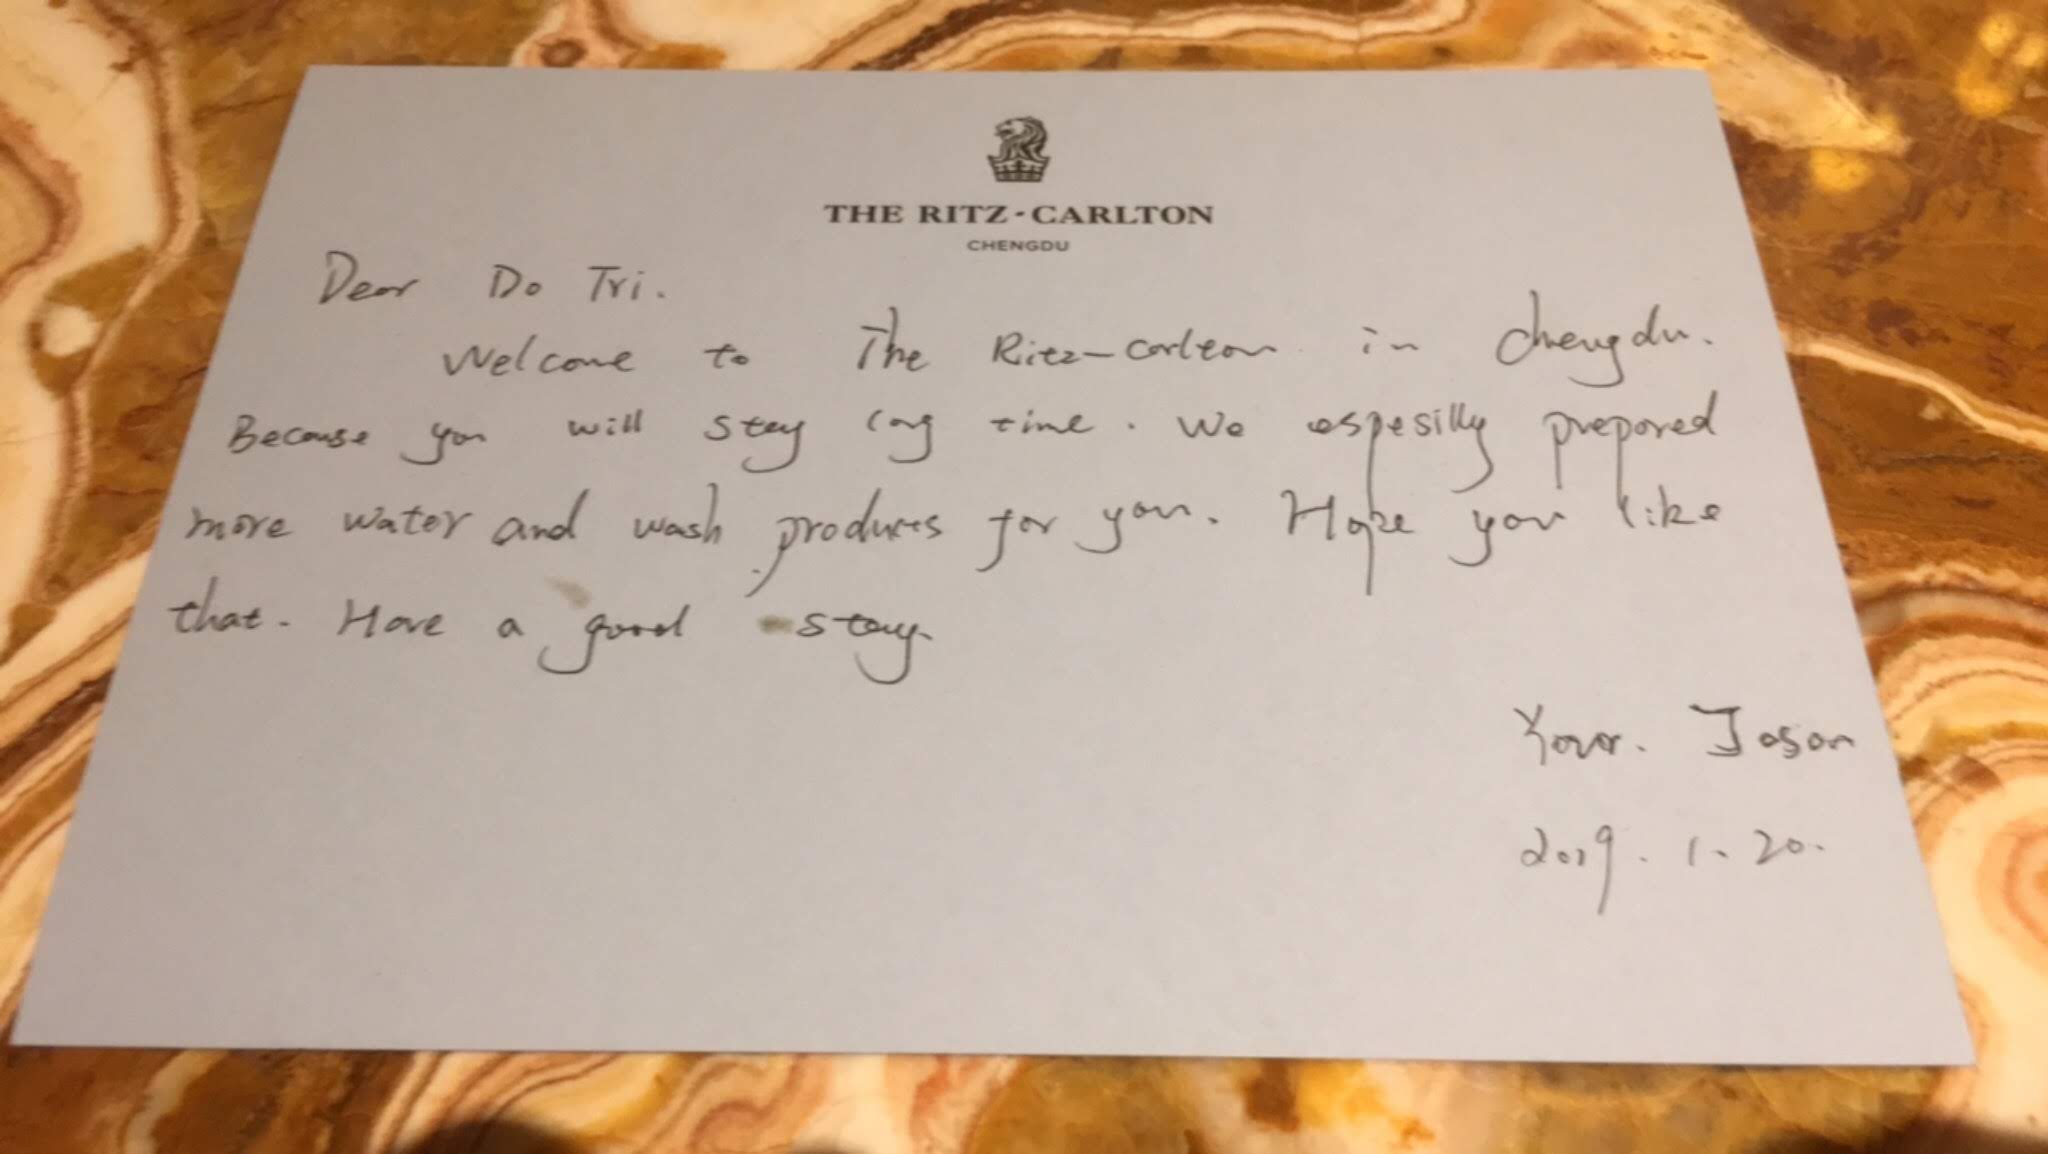 THE RITZ-CARLTON
CHENGDU
Dear Do Tri.
Welcome to The Ritz-Carlton in Chengdu.
Because you will stay long time. We espesilly prepared
more water and wash products for you. Hope you like
that. Have a good stay.
Your. Jason
2019. 1. 20.